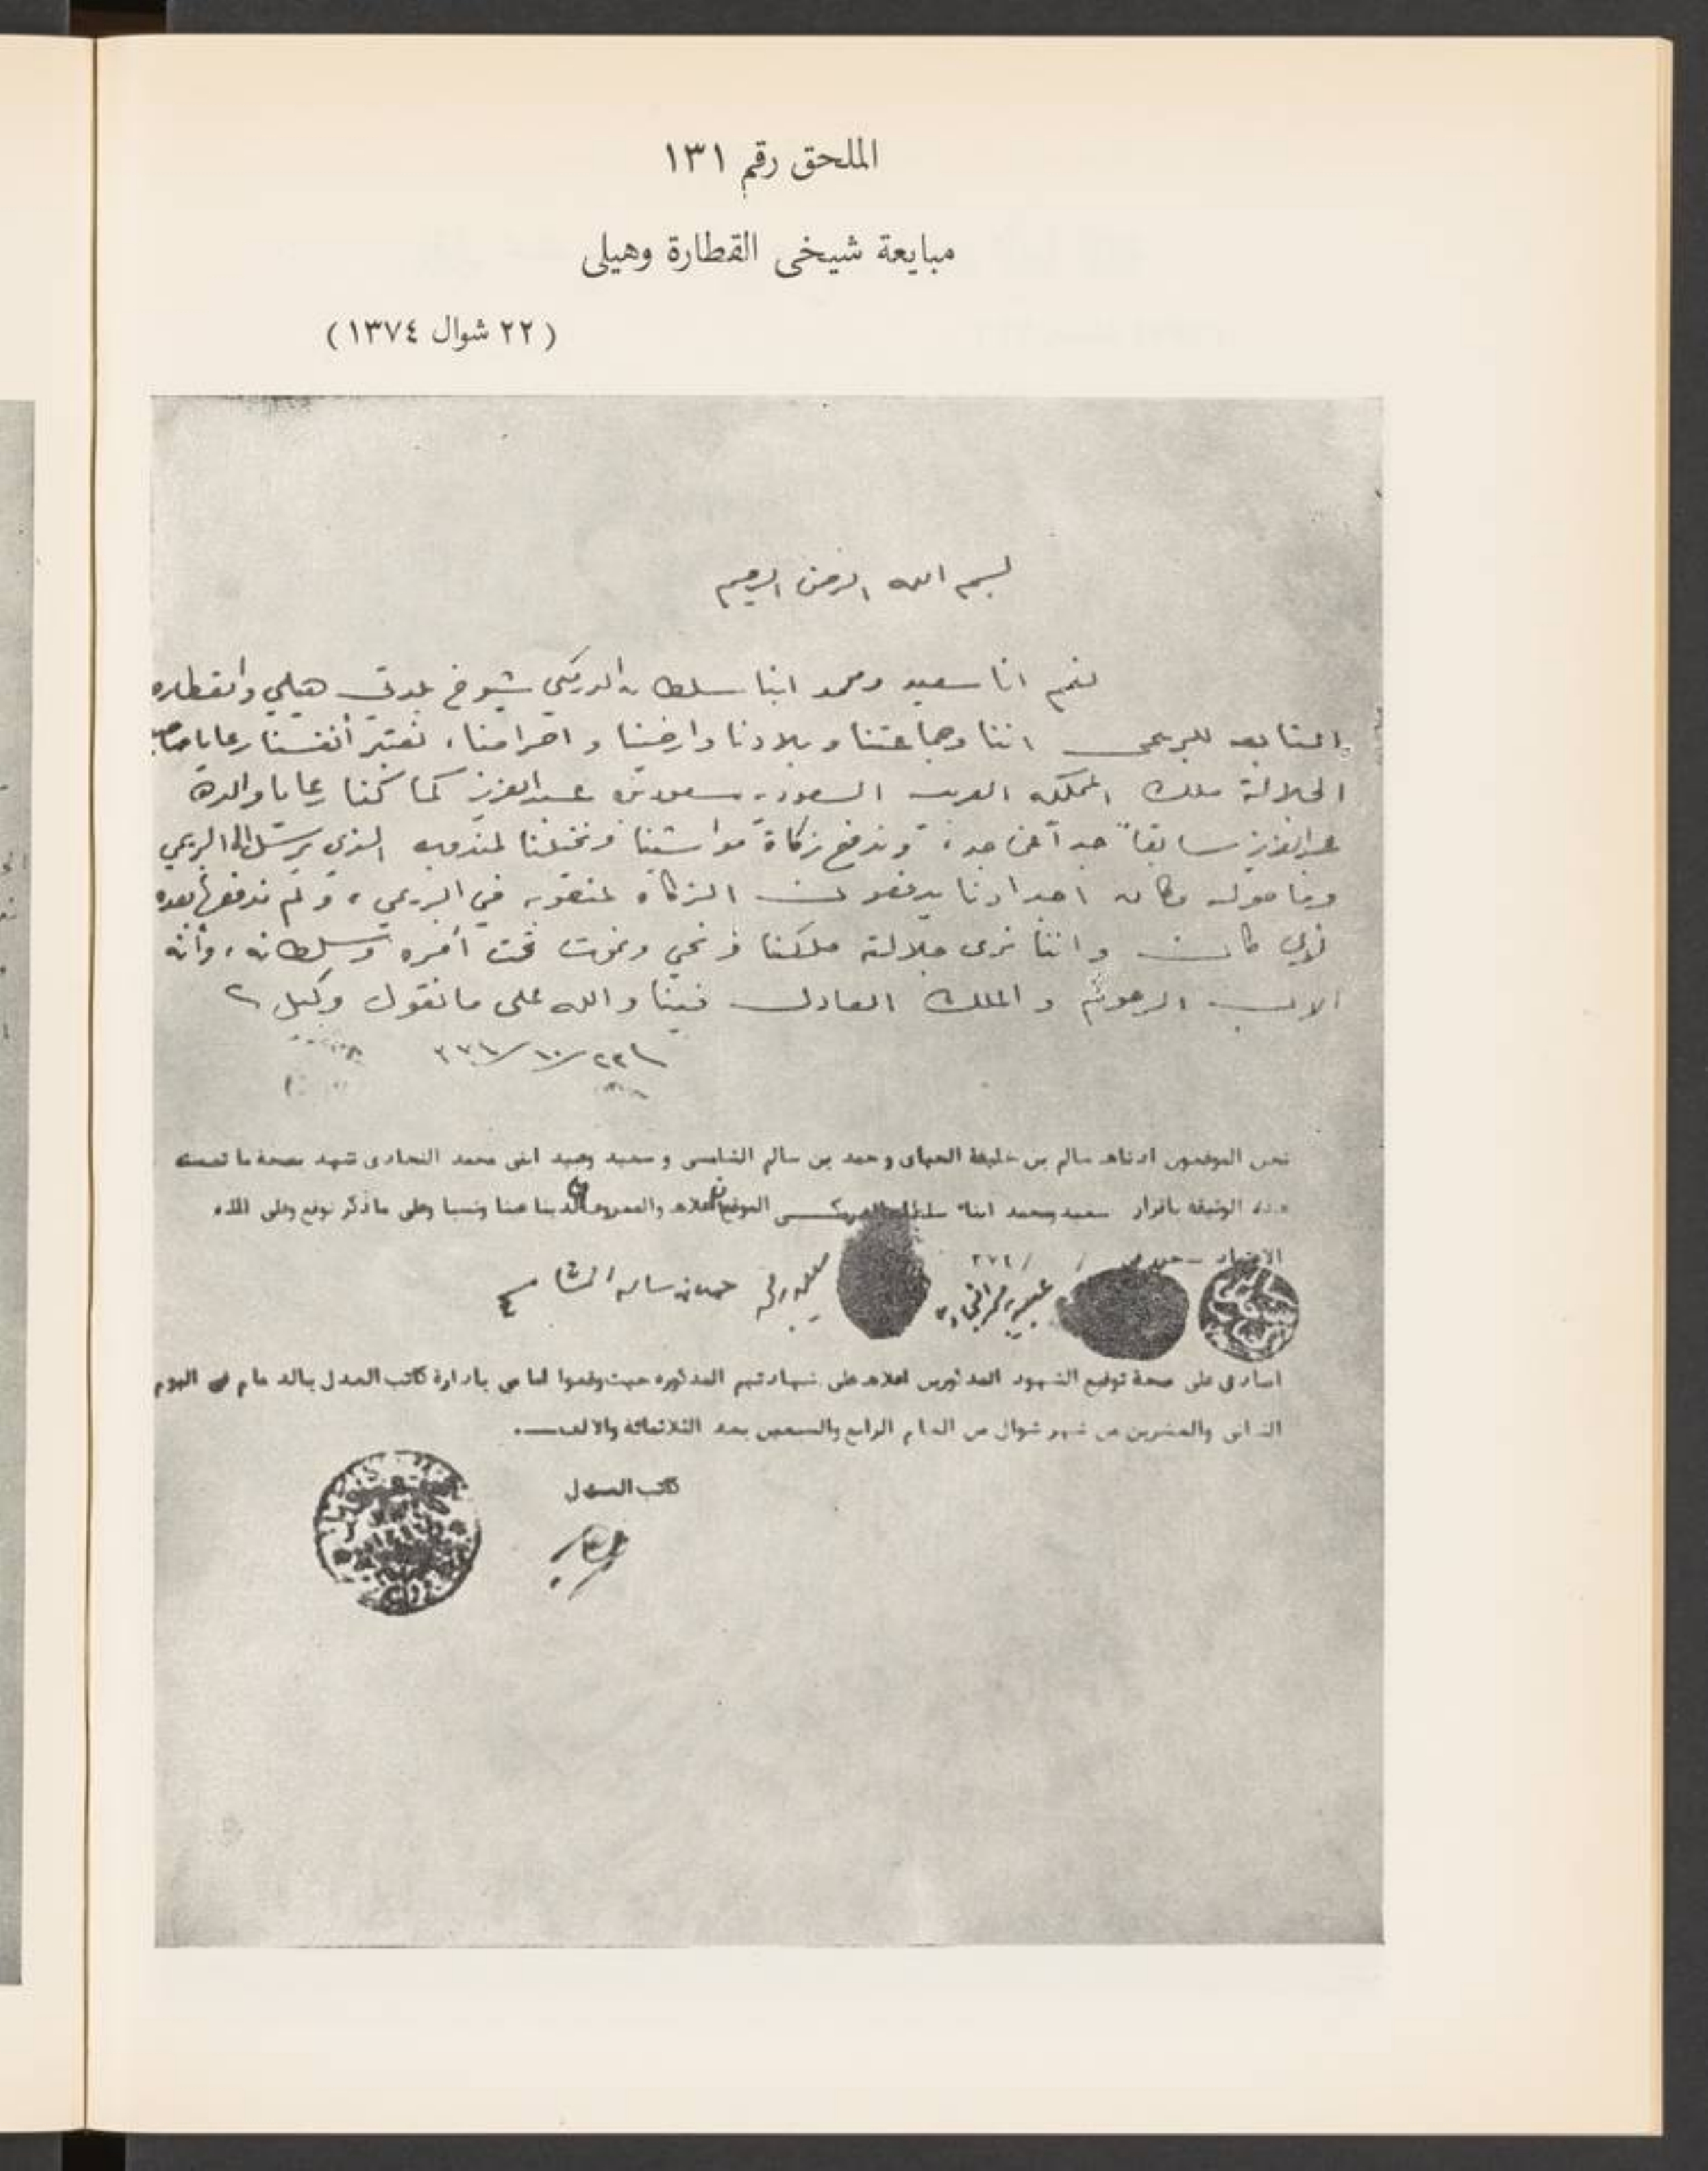 الملحق رقم ١٣١
مبايعة شيخى القطارة وهيلى
( ٢٢ شوال ١٣٧٤ )
بسم الله الرحمن الرحيم
انا سعيد ومحمد ابنا سلطان الدرمكي شيوخ بلدتي هيلي والقطاره
التابعه للبريمي اننا وجماعتنا وبلادنا واراضينا و نعتبر أنفسنا رعايا صاحب
الجلالة ملك المملكه العربيه السعوديه سعود بن عبدالعزيز كما كنا رعايا والده
عبدالعزيز سابقاً جداً عن جد، وندفع زكاة مواشينا ونخيلنا لمندوبه الذي يرسل الى البريمي
وكان اجدادنا يدفعون الزكاه في البريمي، ولم ندفعها بعده
لأي كان واننا نرى جلالة ملكنا ونحيى ونموت تحت أمره وسلطانه، وأنه
الاب الرحوم والملك العادل فينا والله على ما نقول وكيل
نحن الموقعون ادناه سالم بن خليفة وحمد بن سالم الشامسى و سعيد وعبيد ابنى محمد نشهد بصحة ما تضمنته
هذه الوثيقة باقرار سعيد ومحمد ابناء سلطان الدرمكى الموقعان اعلاه والمعروفان لدينا عينا ونسبا وعلى ما ذكر نوقع وعلى الله
الاعتماد
حمد بن سالم الشامسي
على صحة توقيع الشهود المذكورين اعلاه على شهادتهم المذكوره حيث وقعوا امامى بادارة كاتب العدل بالدمام فى اليوم
الثانى والعشرين من شهر شوال من العام الرابع والسبعين بعد الثلاثمائة والالف.
كاتب العدل